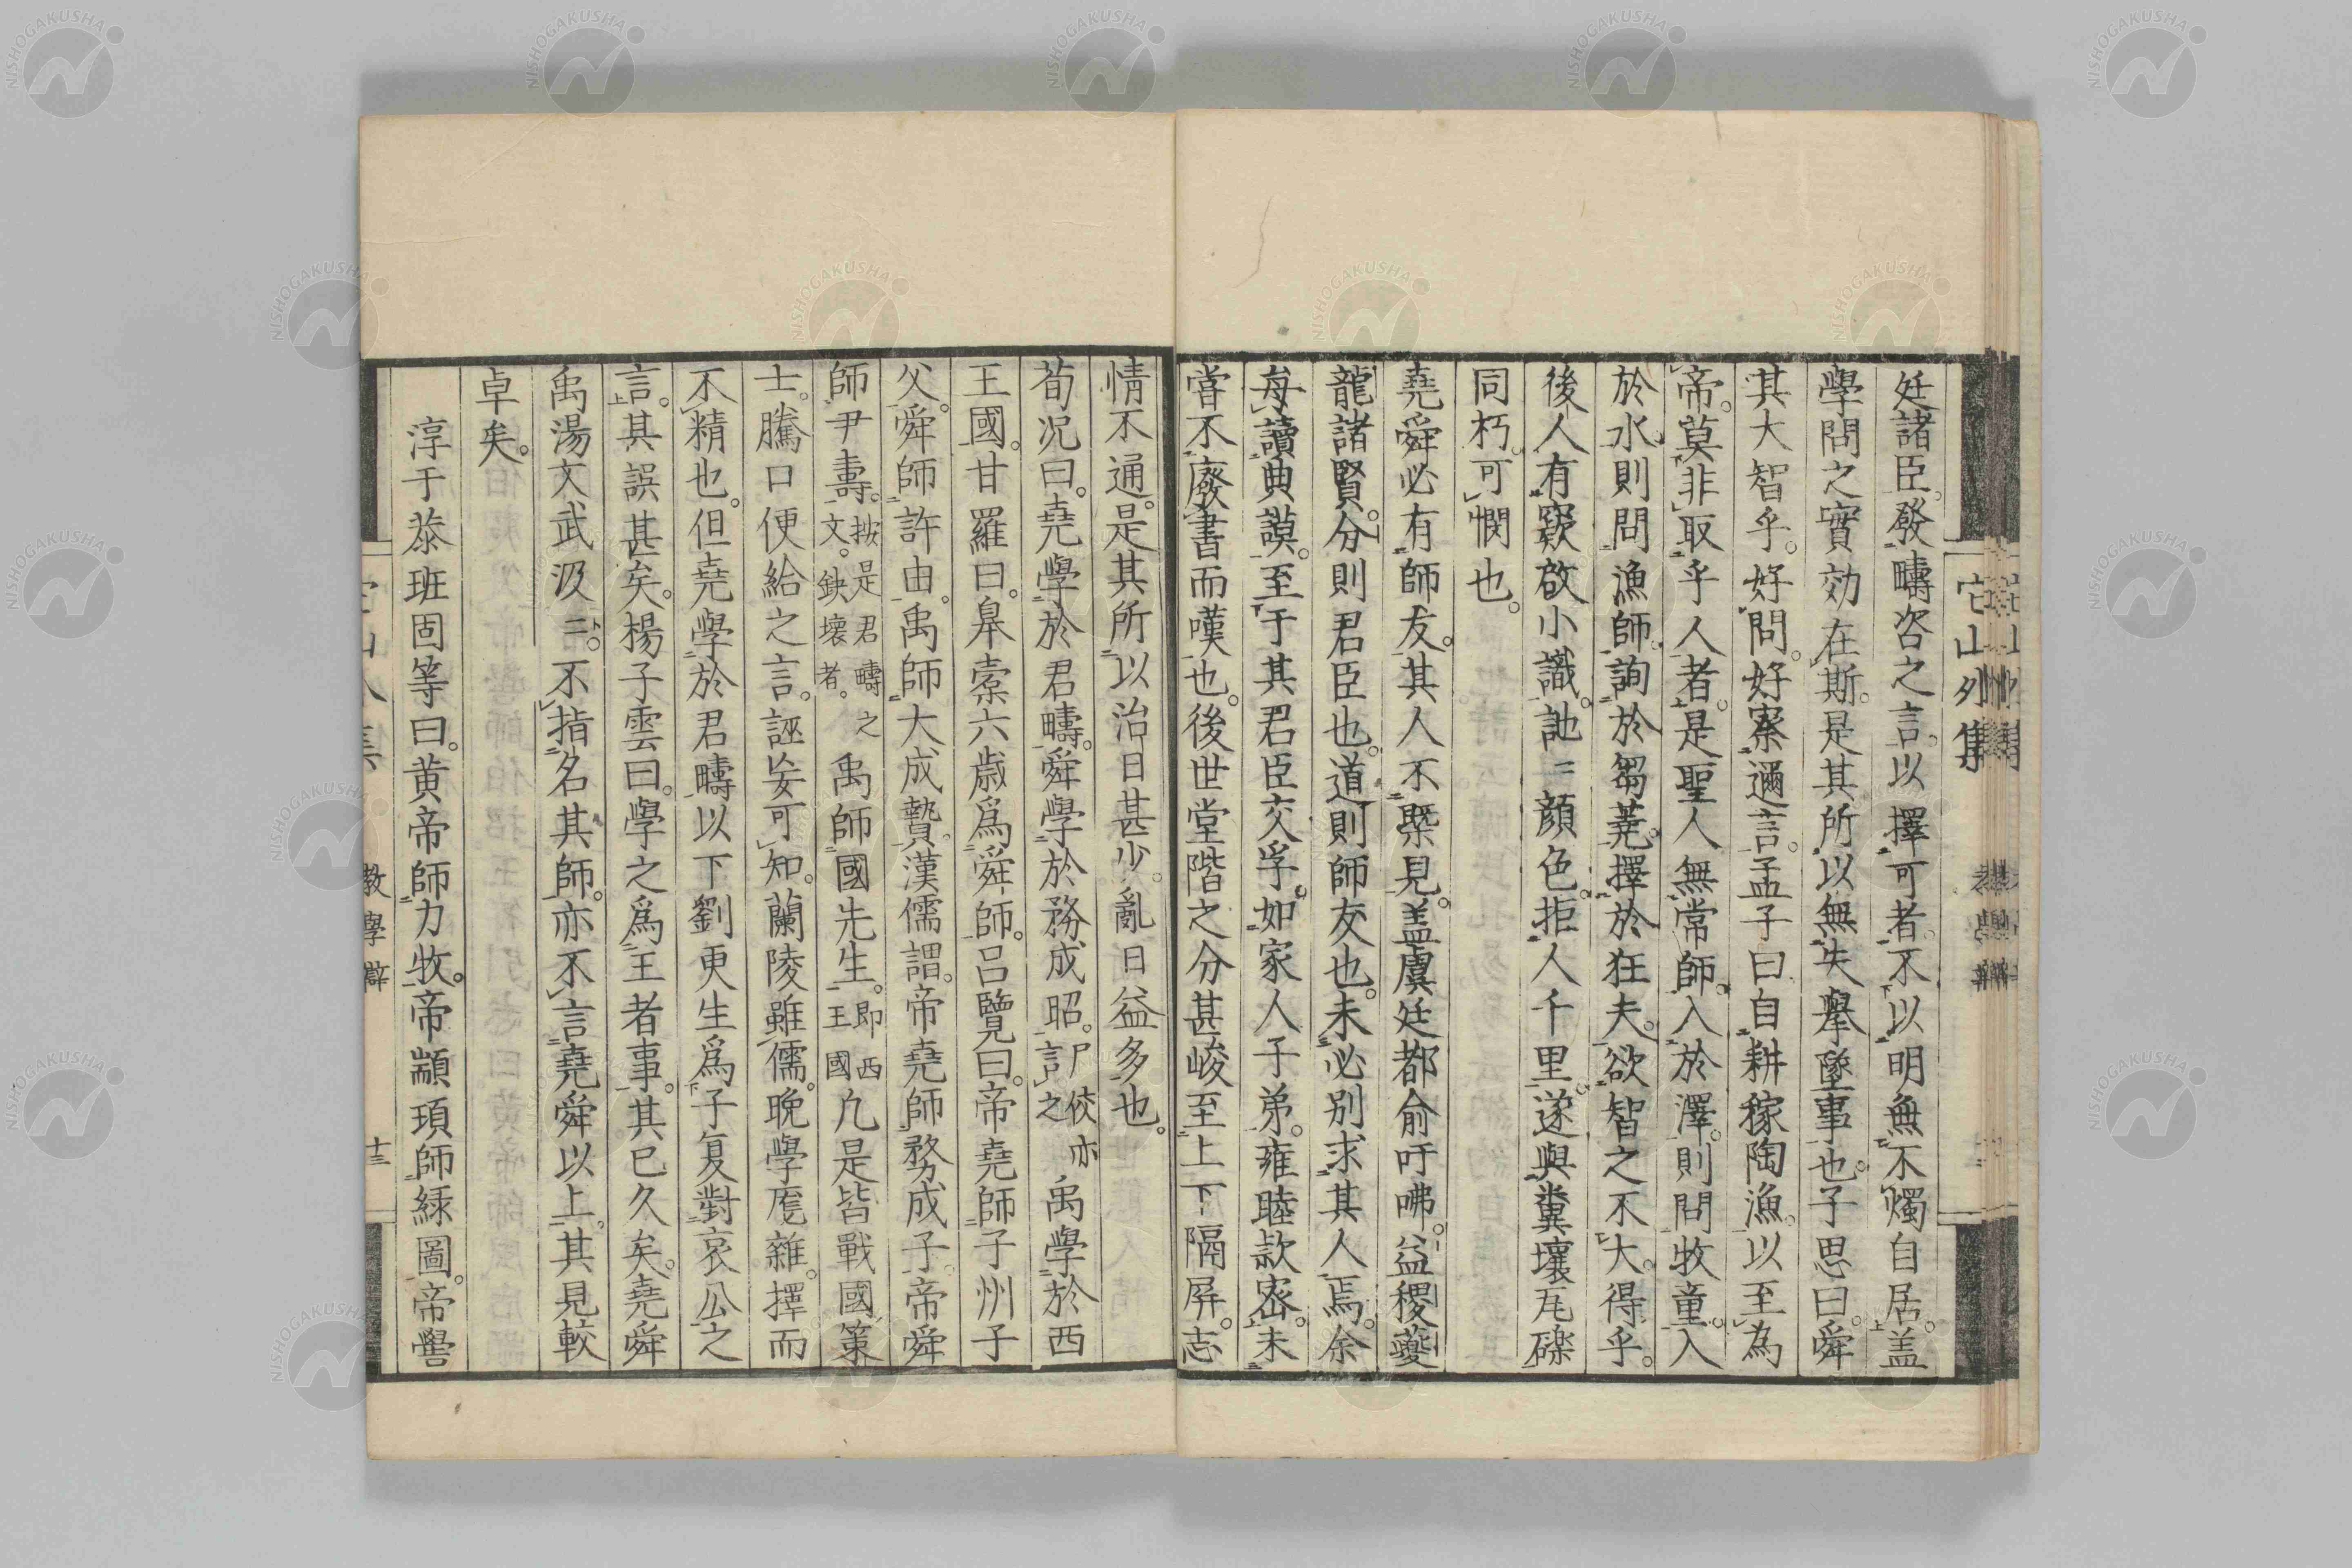 廷諸臣。發疇咨之言。以擇可者。不以明無不燭自居。盖
學問之實効在斯。是其所以無失擧墜事也。子思曰。舜
其大智乎。好問。好察邇言。孟子曰。自耕稼陶漁。以至為
帝。莫非取乎人者。是聖人無常師。入於澤。則問牧童。入
於水。則問漁師。詢於芻蕘。擇於狂夫。欲智之不大。得乎。
後人有竅啟小識。訑〻顔色。拒人千里。遂與糞壤瓦礫
同朽。可憫也。
堯舜必有師友。其人不槩見。盖虞廷都俞吁咈。益稷夔
龍諸賢。分則君臣也。道則師友也。未必別求其人焉。余
每讀典謨。至于其君臣交孚。如家人子弟。雍睦款宻。未
嘗不廢書而嘆也。後世堂階之分甚峻。至上下隔屏。志
情不通。是其所以治日甚少。亂日益多也。
荀況曰。堯學於君疇。舜學於務成昭。尸佼亦言之 禹學於西
王國。甘羅曰。皐橐六歳爲舜師。呂覽曰。帝堯師子州子
父。舜師許由。禹師大成贄。漢儒謂。帝堯師務成子。帝舜
師尹壽。按是君疇之文。缺壞者。禹師國先生。即西王國 凢是皆戰國策
士。騰口便給之言。誣妄可知。蘭陵雖儒。晩學厖雜。擇而
不精也。但堯學於君疇以下。劉更生爲子夏對哀公之
言。其誤甚矣。楊子雲曰。學之爲王者事。其已久矣。堯舜
禹湯文武汲〻。不指名其師。亦不言堯舜以上。其見較
卓矣。
淳于恭班固等曰。黄帝師力牧。帝顓頊師緑圖。帝嚳
它山列集
教學辟
十三